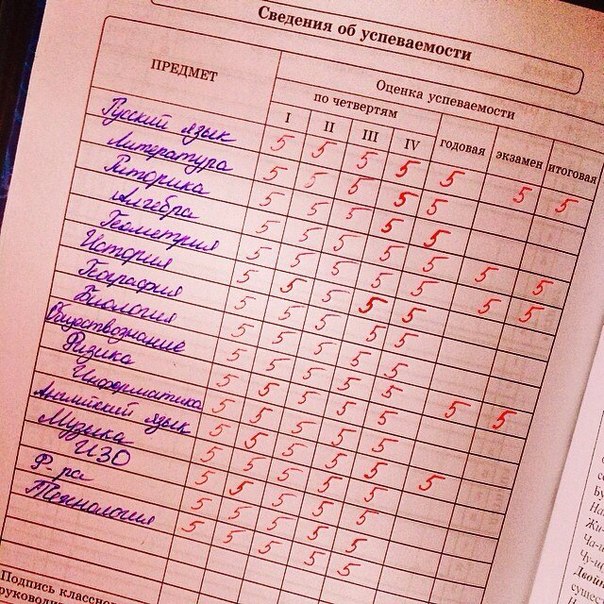 Сведения об успеваемости
ПРЕДМЕТ
Оценка успеваемости
по четвертям
I II III IV годовая экзамен итоговая
Русский язык 5 5 5 5 5 5 5
Литература 5 5 5 5 5
Риторика 5 5 5 5 5
Алгебра 5 5 5 5 5 5 5
Геометрия 5 5 5 5 5 5 5
История 5 5 5 5 5
География 5 5 5 5
Биология 5 5 5 5
Обществознание 5 5 5 5 5 5
Физика 5 5 5 5
Информатика 5 5 5 5
Английский язык 5 5 5 5 5
Музыка 5 5 5 5
ИЗО 5 5 5 5
Ф-ра 5 5 5 5
Технология 5 5 5 5
Подпись